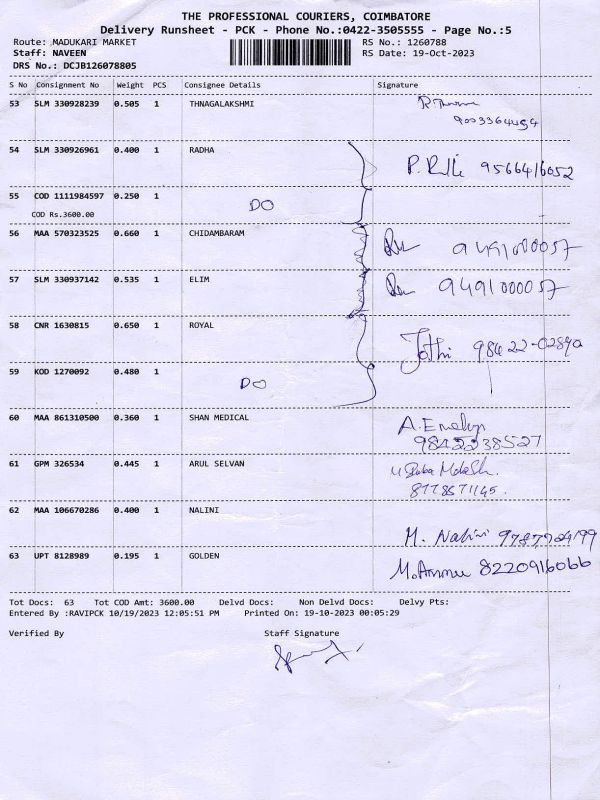 THE PROFESSIONAL COURIERS, COIMBATORE
Delivery Runsheet - PCK - Phone No.:0422-3505555 - Page No.:5
Route: MADUKARI MARKET RS No.: 1260788
Staff: NAVEEN RS Date: 19-Oct-2023
DRS No.: DCJB126078805
S No Consignment No Weight PCS Consignee Details Signature
53 SLM 330928239 0.505 1 THNAGALAKSHMI
9003364454
54 SLM 330926961 0.400 1 RADHA
9566416052
55 COD 1111984597 0.250 1 DO
COD Rs.3600.00
56 MAA 570323525 0.660 1 CHIDAMBARAM
9491000057
57 SLM 330937142 0.535 1 ELIM
9491000057
58 CNR 1630815 0.650 1 ROYAL
Jothi
59 KOD 1270092 0.480 1 DO
60 MAA 861310500 0.360 1 SHAN MEDICAL
9842238527
61 GPM 326534 0.445 1 ARUL SELVAN
62 MAA 106670286 0.400 1 NALINI
M. Nalini
63 UPT 8128989 0.195 1 GOLDEN
8220916066
Tot Docs: 63 Tot COD Amt: 3600.00 Delvd Docs: Non Delvd Docs: Delvy Pts:
Entered By :RAVIPCK 10/19/2023 12:05:51 PM Printed On: 19-10-2023 00:05:29
Verified By Staff Signature